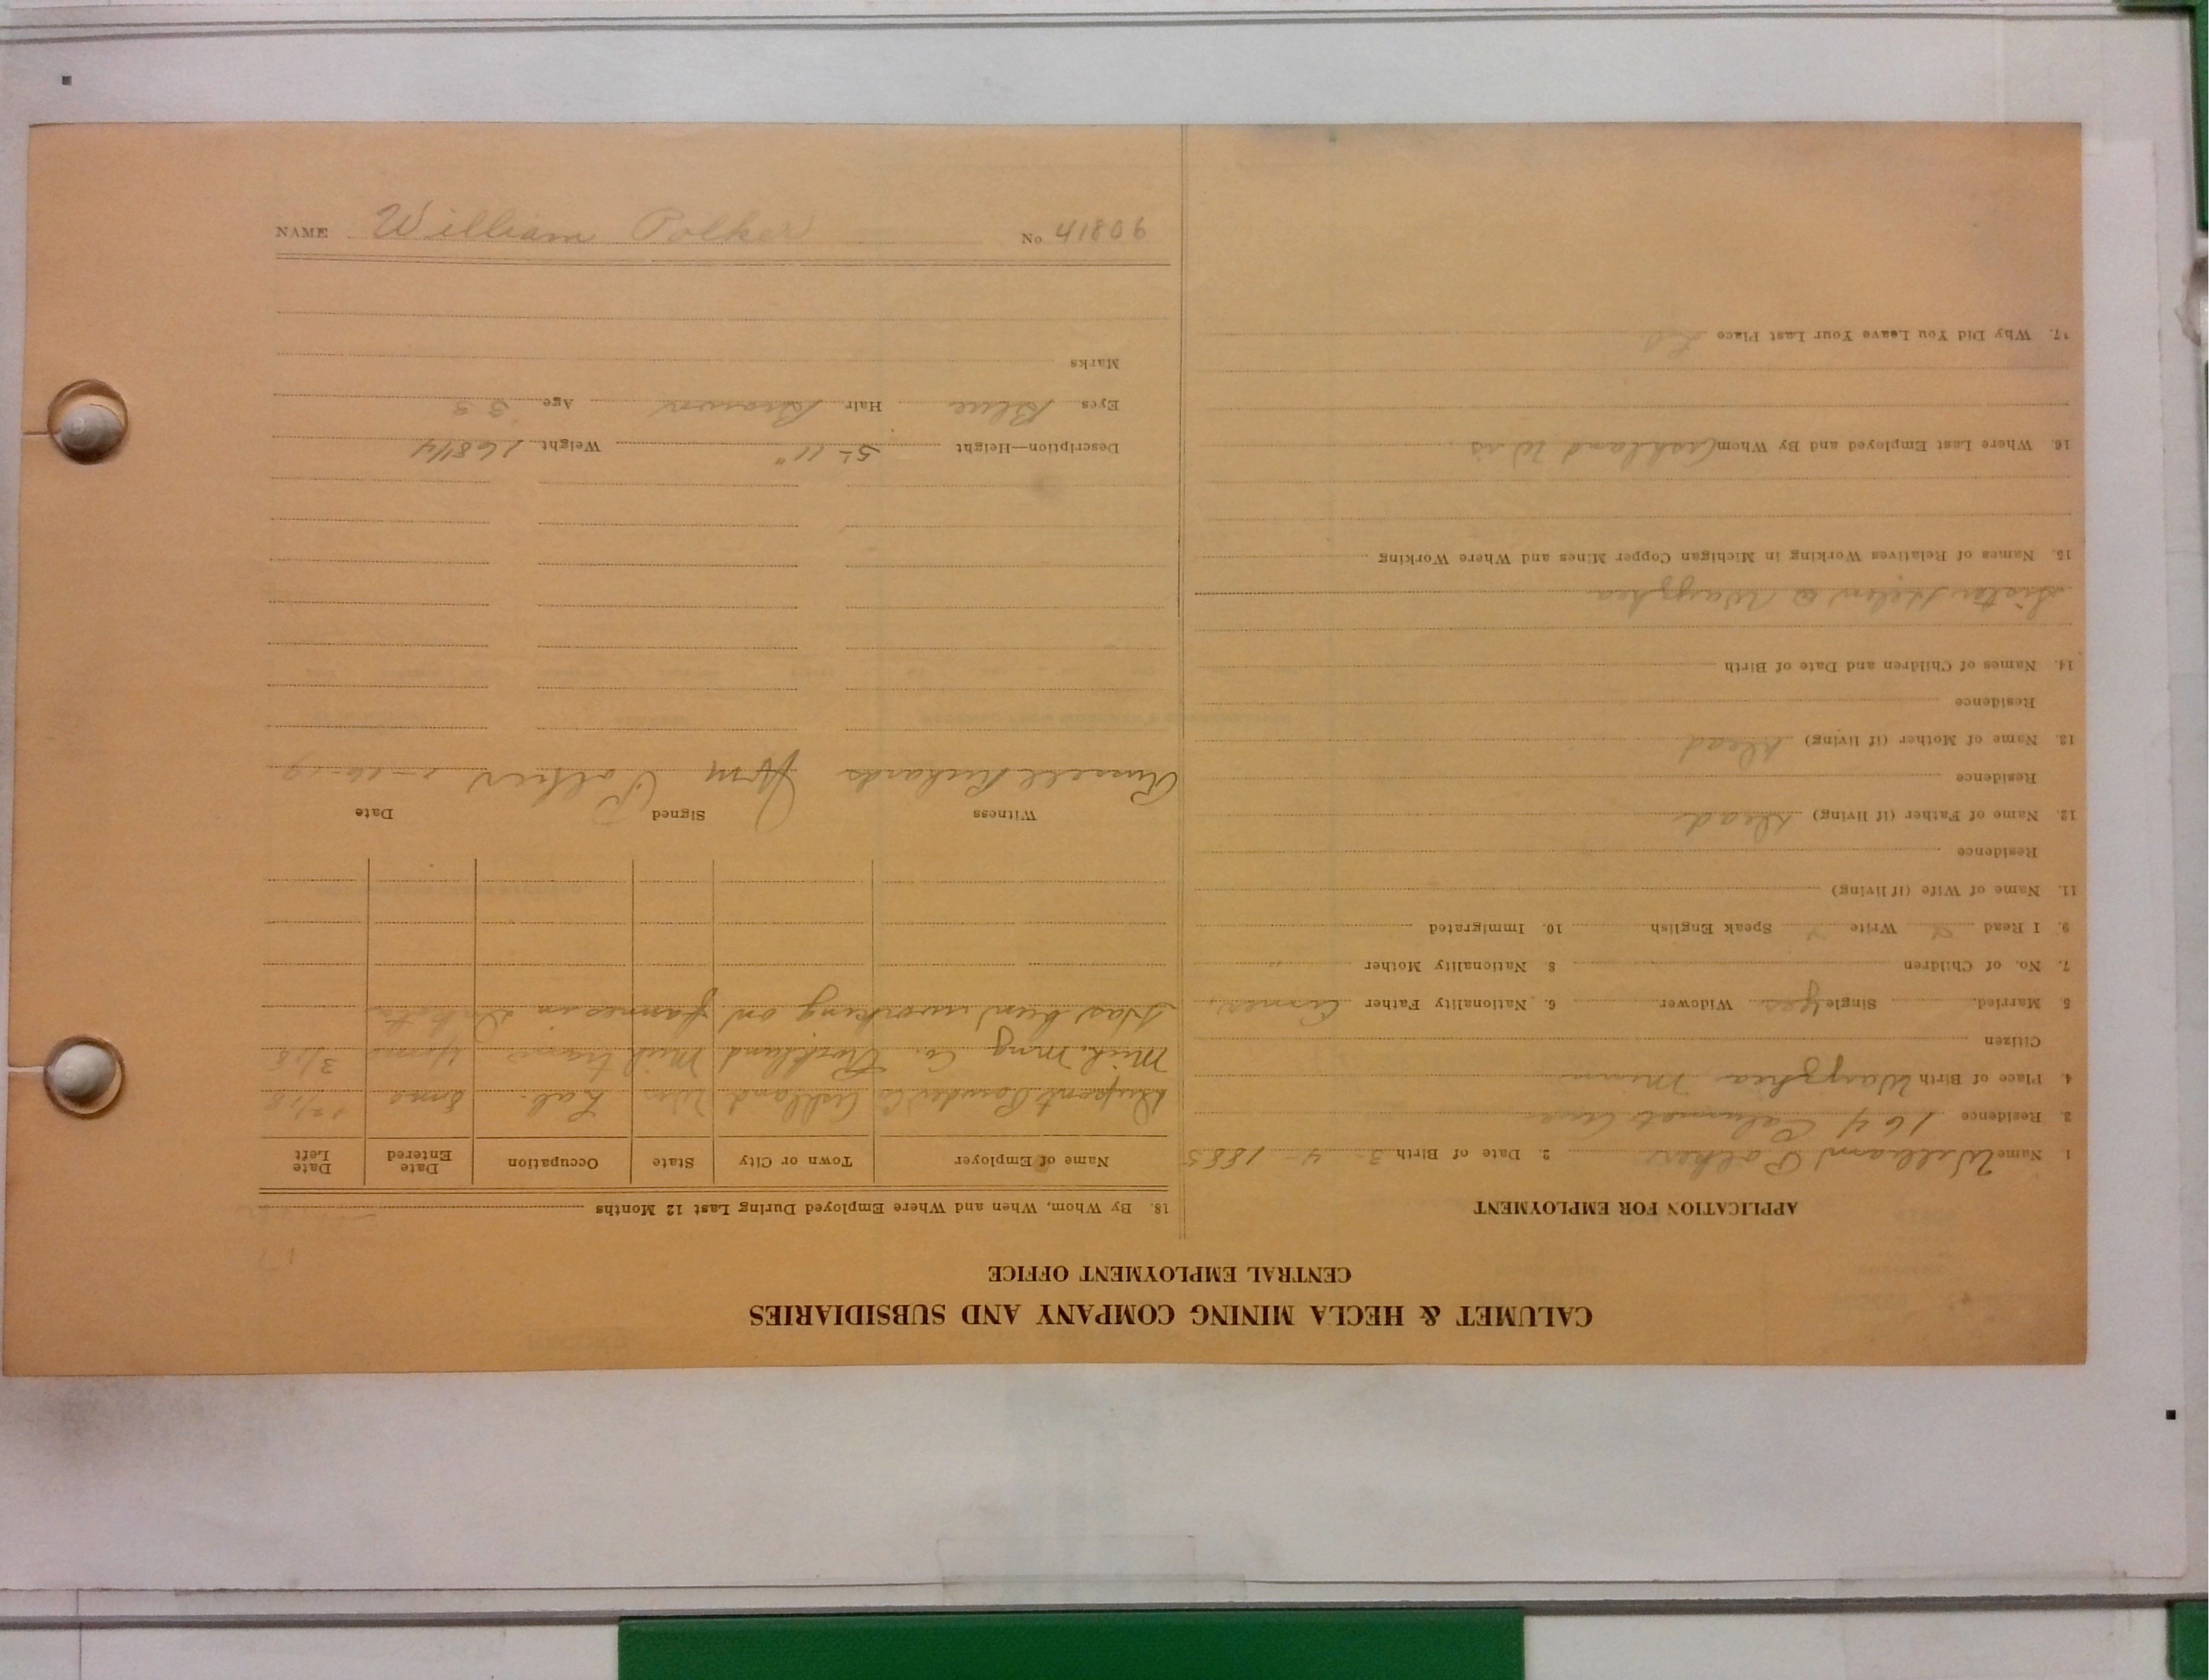 CALUMET & HECLA MINING COMPANY AND SUBSIDIARIES
CENTRAL EMPLOYMENT OFFICE
APPLICATION FOR EMPLOYMENT
1 Name William Polker 2. Date of Birth 3- 4 - 1885
3. Residence 164 Calumet Ave
4. Place of Birth Minn
Citizen
5 Married Single yes Widower 6. Nationality Father
7. No. of Children 8 Nationality Mother "
9. I Read Write Speak English 10. Immigrated
11. Name of Wife (if living)
Residence
12. Name of Father (if living) Dead
Residence
13. Name of Mother (if living) Dead
Residence
14. Names of Children and Date of Birth
Sister Helen
15. Names of Relatives Working in Michigan Copper Mines and Where Working
16. Where Last Employed and By Whom Ashland Wis
17. Why Did You Leave Your Last Place
18. By Whom, When and Where Employed During Last 12 Months
Name of Employer Town or City State Occupation Date Entered Date Left
Dupont Powder Co Ashland Wis Lab. 8mo 12/18
Mich. Mng Co. Rockland Mich tram 4mo 3/18
Has been working on farmes in Dakota
Witness Signed Date
Russell Richards Wm Polker
Description—Height 5-11" Weight 168 1/4
Eyes Blue Hair Brown Age 33
Marks
NAME William Polker No 41806